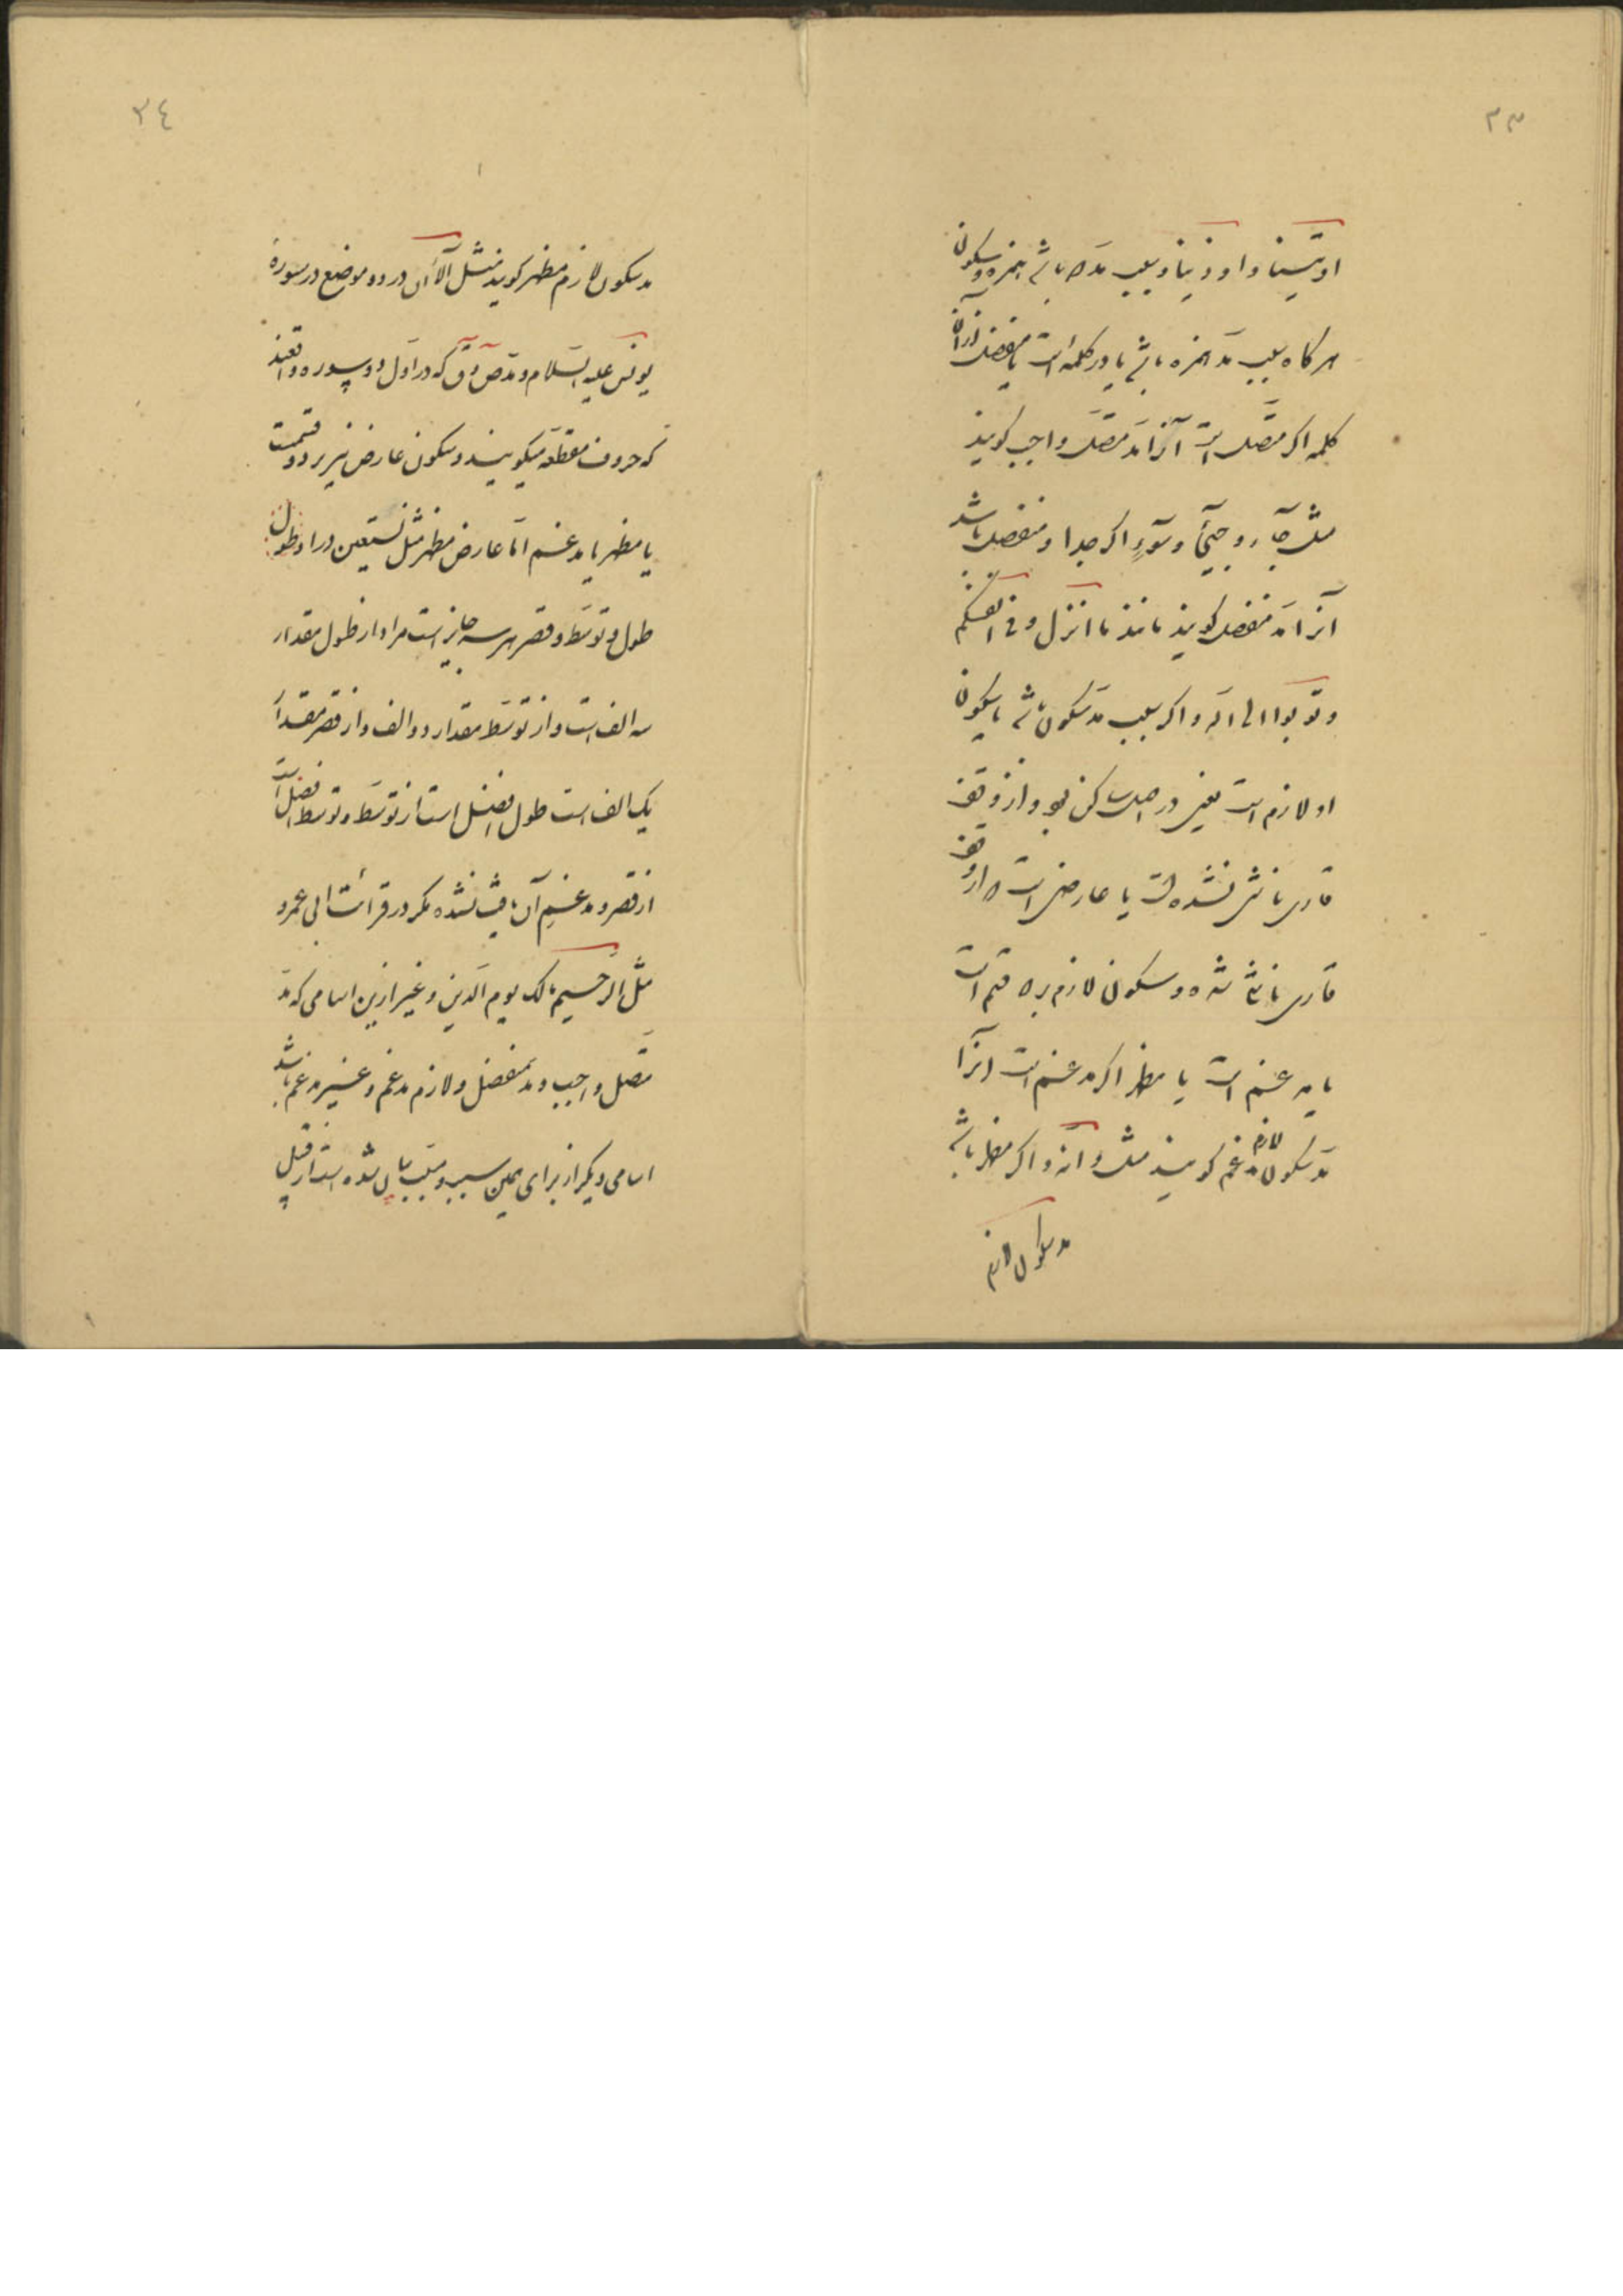 ٣٣
اوتینا و اوذینا و سبب مد یا همزه و سکون
هرگاه سبب مد همزه باشد یا در کلمه است یا منفصل ازان
کلمه اگر متصل است آنرا مد متصل واجب گویند
مثل جآء و جیٓء و سوٓء اگر جدا و منفصل باشد
آنرا مد منفصل گویند مانند ما انزل و فی انفسکم
و توبوا الی الله و اگر سبب مد سکون باشد یا سکون
او لازم است یعنی در اصل ساکن بود و از وقف
قاری ناشی نشده است یا عارضی است که از وقف
قاری ناشی شده و سکون لازم بر دو قسم است
یا مدغم است یا مظهر اگر مدغم است آنرا
مد سکون لازم مدغم گویند مثل دآبّه و اگر مظهر باشد
مد سکون لازم
٣٤
مد سکون لازم مظهر گویند مثل آلآن در دو موضع در سوره
یونس علیه السلام و مد ص و ق که در اول دو سوره واقعند
که حروف مقطعه میگویند و سکون عارض نیز بر دو قسمت
یا مظهر یا مدغم اما عارض مظهر مثل نستعین در او طول
طول و توسط و قصر هر سه جایز است مراد از طول مقدار
سه الف است و از توسط مقدار دو الف و از قصر مقدار
یک الف است طول افضل است از توسط و توسط افضل است
از قصر و مدغم آن یافت نشده مگر در قرائت ابی عمرو
مثل الرحیم مالک یوم الدین و غیر ازین اسامی که مد
متصل واجب و مد منفصل و لازم مدغم و غیر مدغم باشد
اسامی دیگر از برای همین سبب و مسبب بیان شده است از قبیل